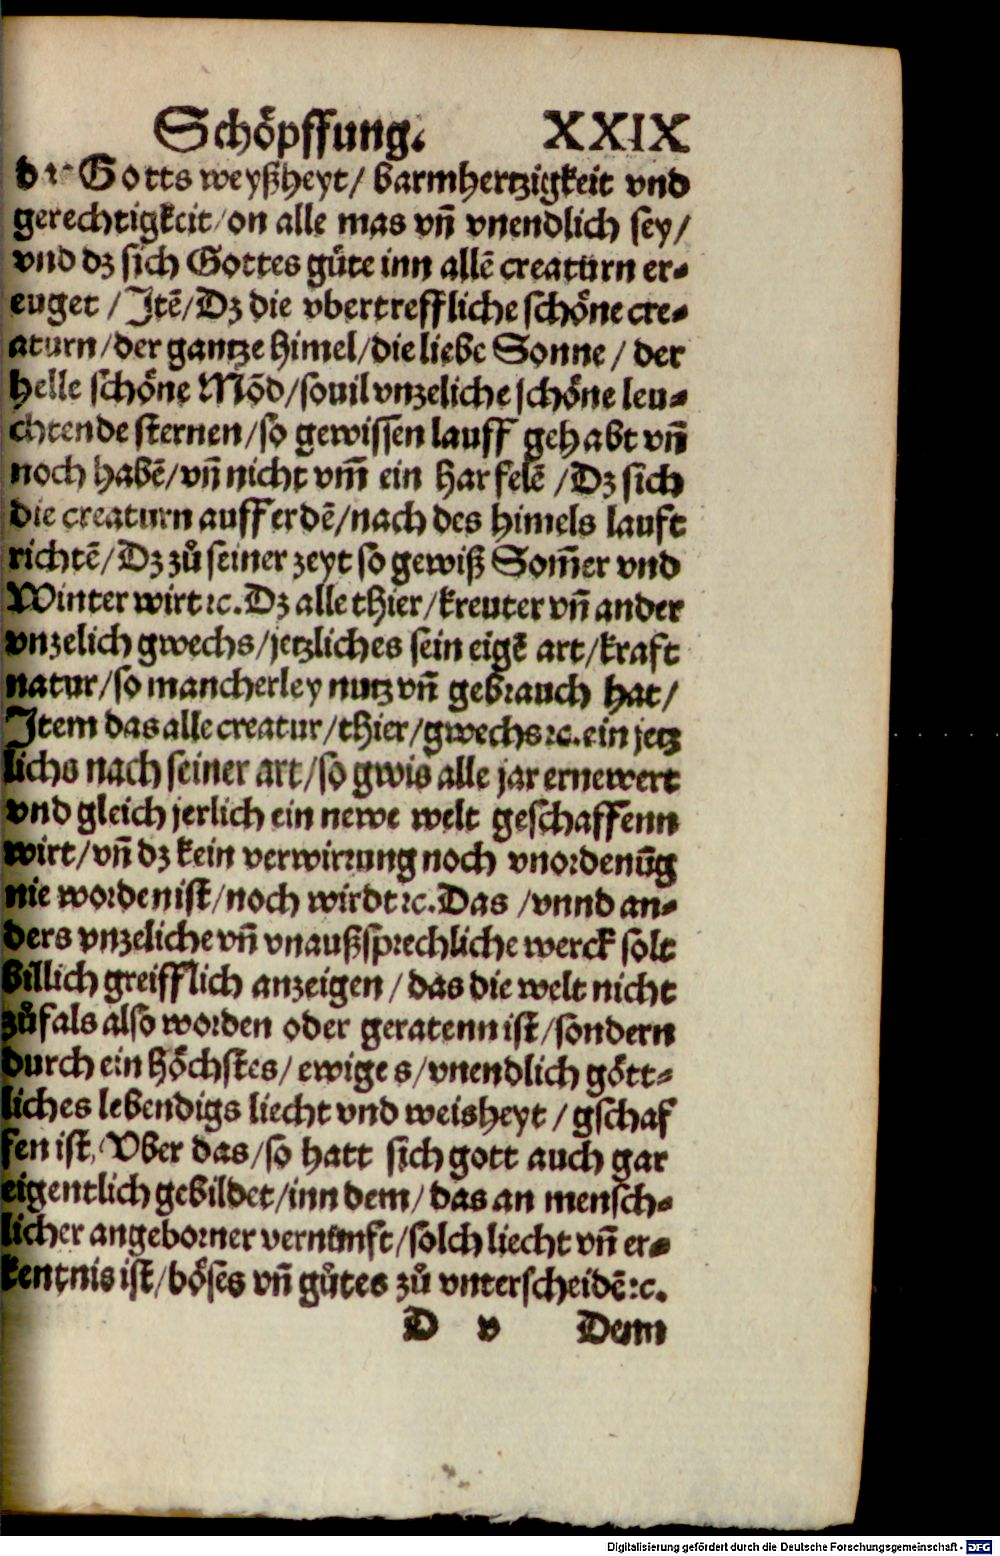 Schöpffung. XXIX
Gotts weyßheyt/ barmhertzigkeit vnd
gerechtigkeit/on alle mas vñ vnendlich sey/
vnd dz sich Gottes gůte inn allẽ creaturn er-
euget /Jtẽ/Dz die vbertreffliche schöne cre-
aturn/der gantze himel/die liebe Sonne/ der
helle schöne Mõd/souil vnzeliche schöne leu-
chtende sternen/so gewissen lauff gehabt vñ
noch habẽ/vñ nicht vm̃ ein har felẽ /Dz sich
die creaturn auff erdẽ/nach des himels lauft
richtẽ/Dz zů seiner zeyt so gewiß Som̃er vnd
Winter wirt ꝛc. Dz alle thier/kreuter vñ ander
vnzelich gwechs/jetzliches sein eigẽ art/kraft
natur/so mancherley nutz vñ gebrauch hat/
Jtem das alle creatur/thier/gwechs ꝛc. ein jetz
lichs nach seiner art/so gwis alle jar ernewert
vnd gleich jerlich ein newe welt geschaffenn
wirt/vñ dz kein verwirrung noch vnordenũg
nie worden ist/noch wirdt ꝛc. Das /vnnd an-
ders vnzeliche vñ vnaußsprechliche werck solt
billich greifflich anzeigen/ das die welt nicht
zůfals also worden oder geratenn ist/sondern
durch ein höchstes/ ewiges/vnendlich gött-
liches lebendigs liecht vnd weisheyt /gschaf
fen ist, Vber das/so hatt sich gott auch gar
eigentlich gebildet/inn dem/das an mensch-
licher angeborner vernunft/solch liecht vñ er-
kentnis ist/böses vñ gůtes zů vnterscheidẽ ꝛc.
D v Dem
Digitalisierung gefördert durch die Deutsche Forschungsgemeinschaft - DFG